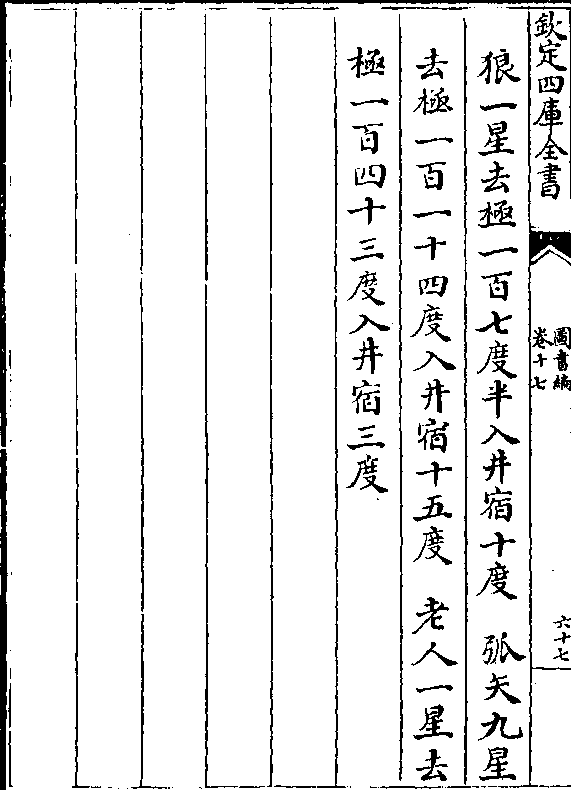 欽定四庫全書
圖書編
卷十七
六十七
狼一星去極一百七度半入井宿十度　弧矢九星
去極一百一十四度入井宿十五度　老人一星去
極一百四十三度入井宿三度